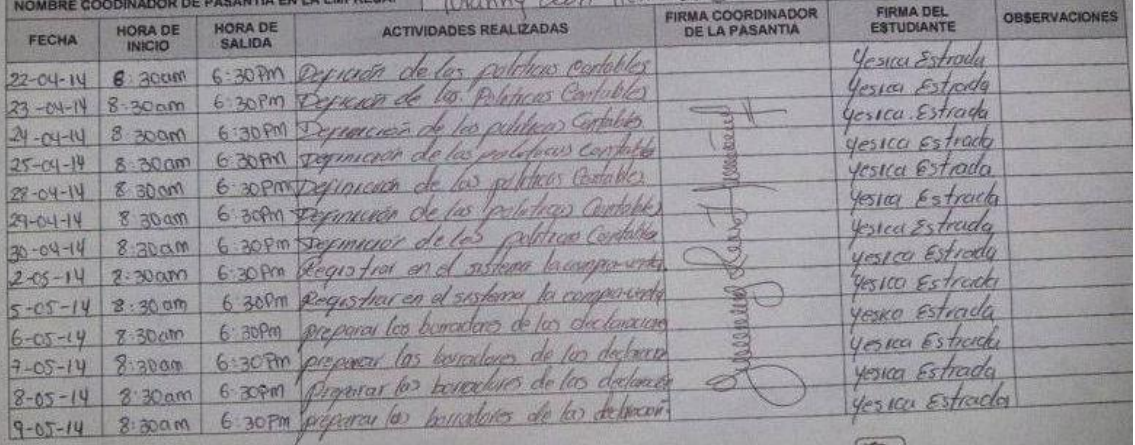 NOMBRE COODINADOR DE PASANTIA EN LA EMPRESA:
FECHA HORA DE INICIO HORA DE SALIDA ACTIVIDADES REALIZADAS FIRMA COORDINADOR DE LA PASANTIA FIRMA DEL ESTUDIANTE OBSERVACIONES
22-04-14 8:30am 6:30Pm Definición de las politicas Contables Yesica Estrada
23-04-14 8:30am 6:30Pm Definición de las Politicas Contables Yesica Estrada
24-04-14 8:30am 6:30Pm Definición de las politicas Contables Yesica Estrada
25-04-14 8:30am 6:30Pm Definición de las politicas Contables Yesica Estrada
28-04-14 8:30am 6:30Pm Definición de las politicas Contables Yesica Estrada
29-04-14 8:30am 6:30Pm Definición de las politicas Contables Yesica Estrada
30-04-14 8:30am 6:30Pm Definición de las politicas Contables Yesica Estrada
2-05-14 8:30am 6:30Pm Registrar en el sistema la compra-venta Yesica Estrada
5-05-14 8:30am 6:30Pm Registrar en el sistema la compra-venta Yesica Estrada
6-05-14 8:30am 6:30Pm preparar los borradores de las declaracion Yesica Estrada
7-05-14 8:30am 6:30Pm preparar los borradores de las Yesica Estrada
8-05-14 8:30am 6:30Pm Preparar los borradores de las Yesica Estrada
9-05-14 8:30am 6:30Pm preparar los borradores de las Yesica Estrada